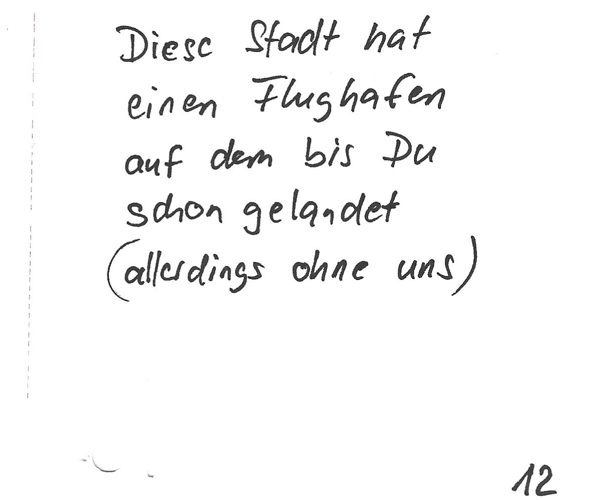 Diese Stadt hat
einen Flughafen
auf dem bis Du
schon gelandet
(allerdings ohne uns)
12